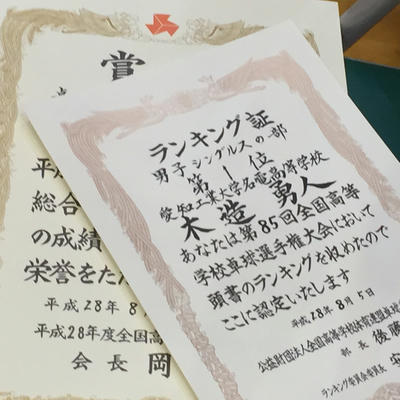 賞
平
総合
の成績
栄誉をたた
平成28年8
平成28年度全国高
会長 岡
ランキング証
男子シングルスの部
第1位
愛知工業大学名電高等学校
木造勇人
あなたは第85回全国高等
学校卓球選手権大会において
頭書のランキングを収めたので
ここに認定いたします
平成28年8月5日
公益財団法人全国高等学校体育連盟卓球
部長 後藤
ランキング委員会委員長 安